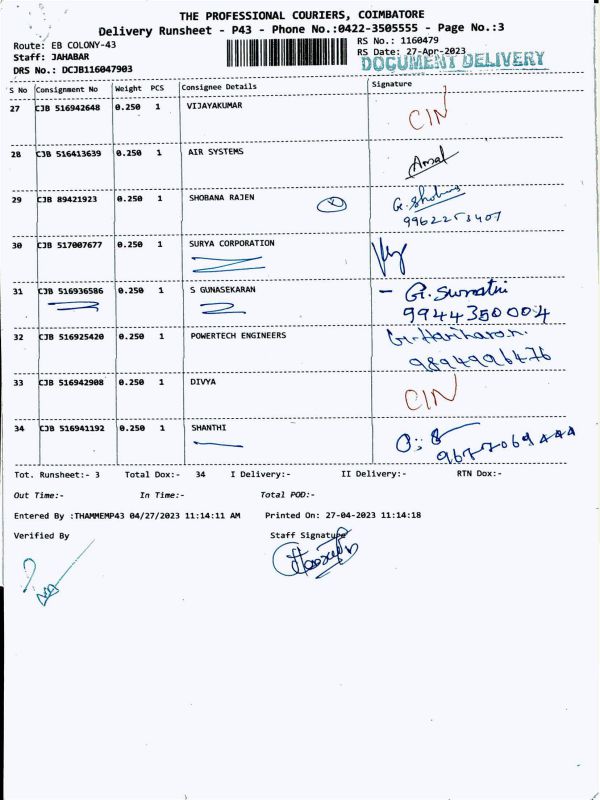 THE PROFESSIONAL COURIERS, COIMBATORE
Delivery Runsheet - P43 - Phone No.:0422-3505555 - Page No.:3
Route: EB COLONY-43 RS No.: 1160479
Staff: JAHABAR RS Date: 27-Apr-2023
DRS No.: DCJB116047903 DOCUMENT DELIVERY
S No Consignment No Weight PCS Consignee Details Signature
27 CJB 516942648 0.250 1 VIJAYAKUMAR CIN
28 CJB 516413639 0.250 1 AIR SYSTEMS
29 CJB 89421923 0.250 1 SHOBANA RAJEN G. Shobana
30 CJB 517007677 0.250 1 SURYA CORPORATION
31 CJB 516936586 0.250 1 S GUNASEKARAN - G. Sumathi
9944350004
32 CJB 516925420 0.250 1 POWERTECH ENGINEERS G. Hariharan
9894996476
33 CJB 516942908 0.250 1 DIVYA CIN
34 CJB 516941192 0.250 1 SHANTHI
Tot. Runsheet:- 3 Total Dox:- 34 I Delivery:- II Delivery:- RTN Dox:-
Out Time:- In Time:- Total POD:-
Entered By :THAMMEMP43 04/27/2023 11:14:11 AM Printed On: 27-04-2023 11:14:18
Verified By Staff Signature